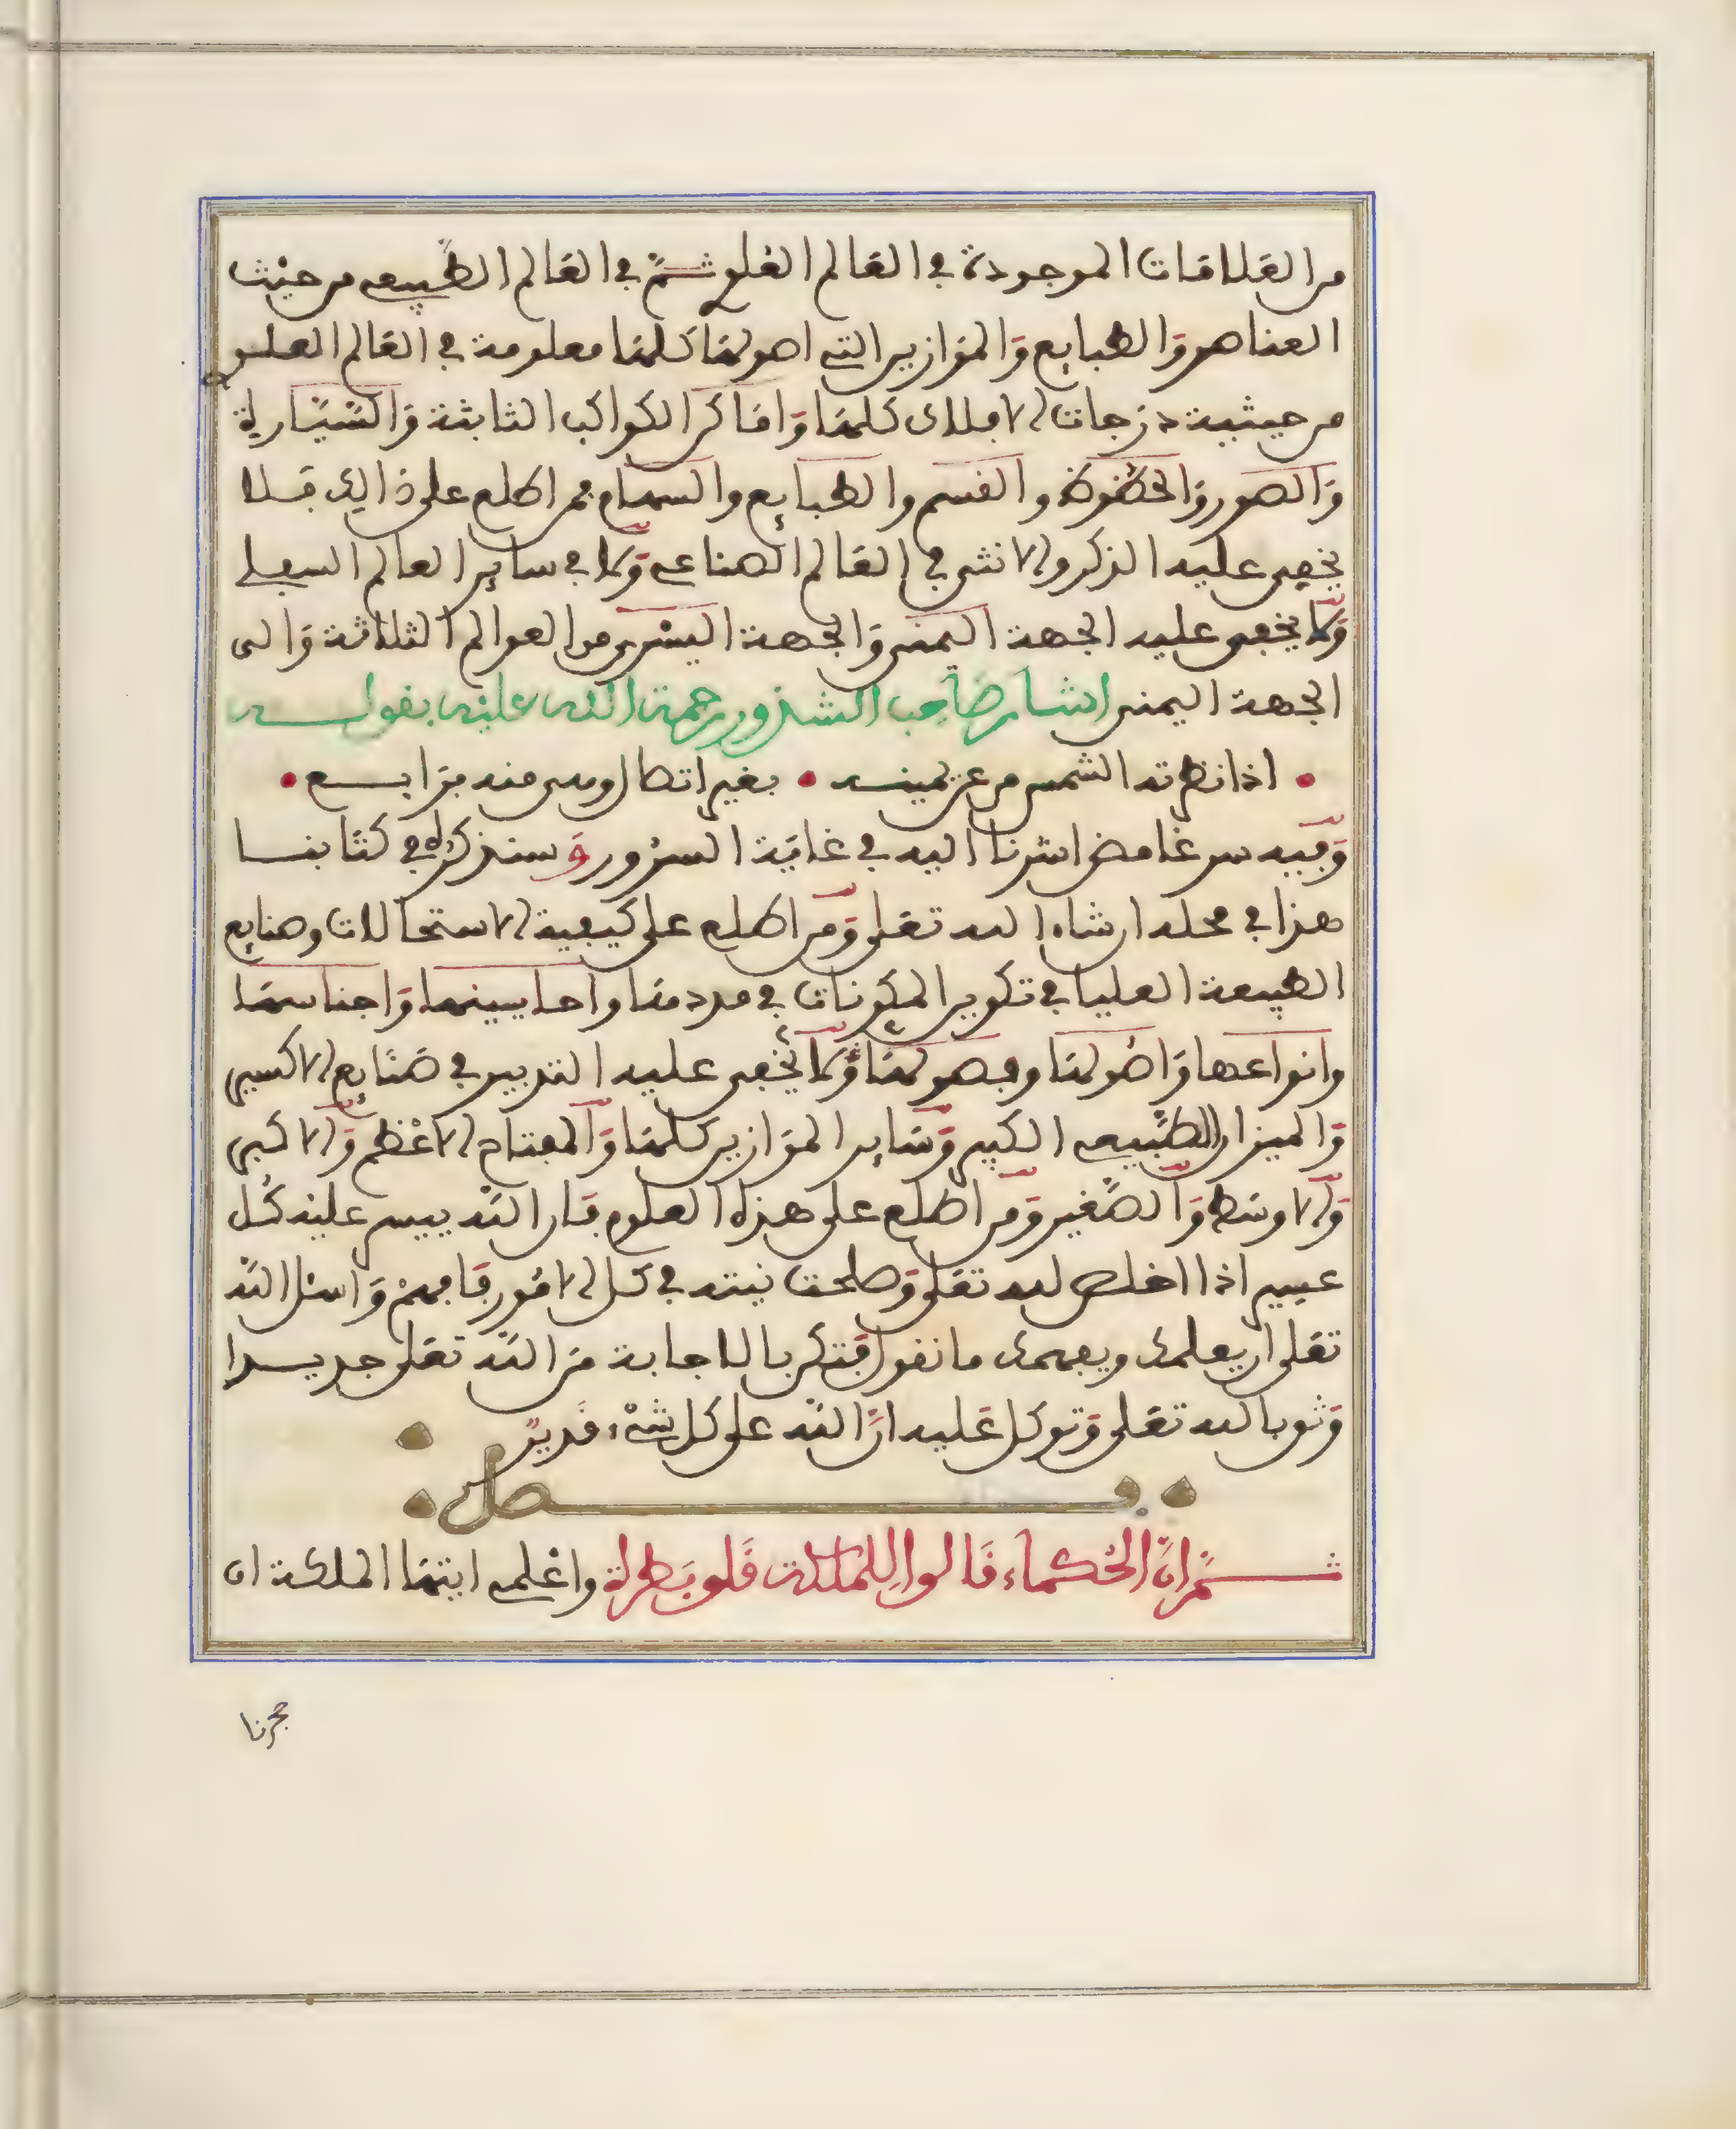 من العلاقات الموجودة في العالم العلوي ثم في العالم الطبيعي من حيث
العناصر والطبايع والموازين التي اصولها كلها معلومة في العالم العلوي
من حيثية درجات الافلاك كلها واماكن الكواكب الثابتة والسيارية
والصور والحظوظ والقسم والطبايع والسهام فمن اطلع على ذالك فلا
يخفى عليه الذكر والانثى في العالم الصناعي ولا في ساير العالم السفلي
ولا يخفى عليه الجهة اليمنى والجهة اليسرى من العوالم الثلاثة والى
الجهة اليمنى اشار صاحب الشذور رحمة الله عليه بقولــه
• اذا نظرته الشمس من عن يمينه • بغير اتصال وهي منه برابـع •
وفيه سر غامض اشرنا اليه في غاية السرور وسنذكره في كتابنا
هذا في محله ان شاء الله تعلى ومن اطلع على كيفية الاستحالات وصنايع
الطبيعة العليا في تكوين المكونات في مددها واحايينها واجناسها
وانواعها واصولها وفصولها ولا يخفى عليه التدبير في صنايع الاكسير
والميزان الطبيعي الكبير وساير الموازين كلها والمفتاح الاعظم والاكبر
والاوسط والصغير ومن اطلع على هذه العلوم فان الله ييسر عليه كل
عسير اذا اخلص لله تعلى وصلحت نيته في كل الامور فافهم واسئل الله
تعلى ان يعلمك ويفهمك ما نقول فتكن بالاجابة من الله تعلى جديرا
وثق بالله تعلى وتوكل عليه ان الله على كل شيء قدير
فــصل
ثــم ان الحكماء قالوا للملكة قلوبطرة واعلمي ايتها الملكة ان
حجرنا